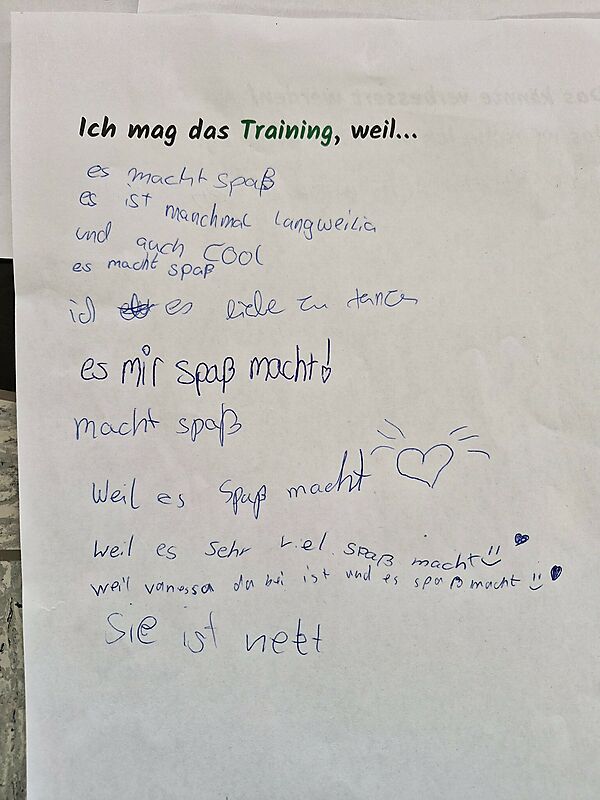 Das könnte verbessert werden!
Ich mag das Training, weil...
es macht spaß
es ist manchmal langweilia
und auch COOl
es macht spaß
ich es liebe zu tanzen
es mir spaß macht!
macht spaß
Weil es Spaß macht
weil es sehr viel spaß macht
weil vanessa da bei ist und es spaß macht
Sie ist nett